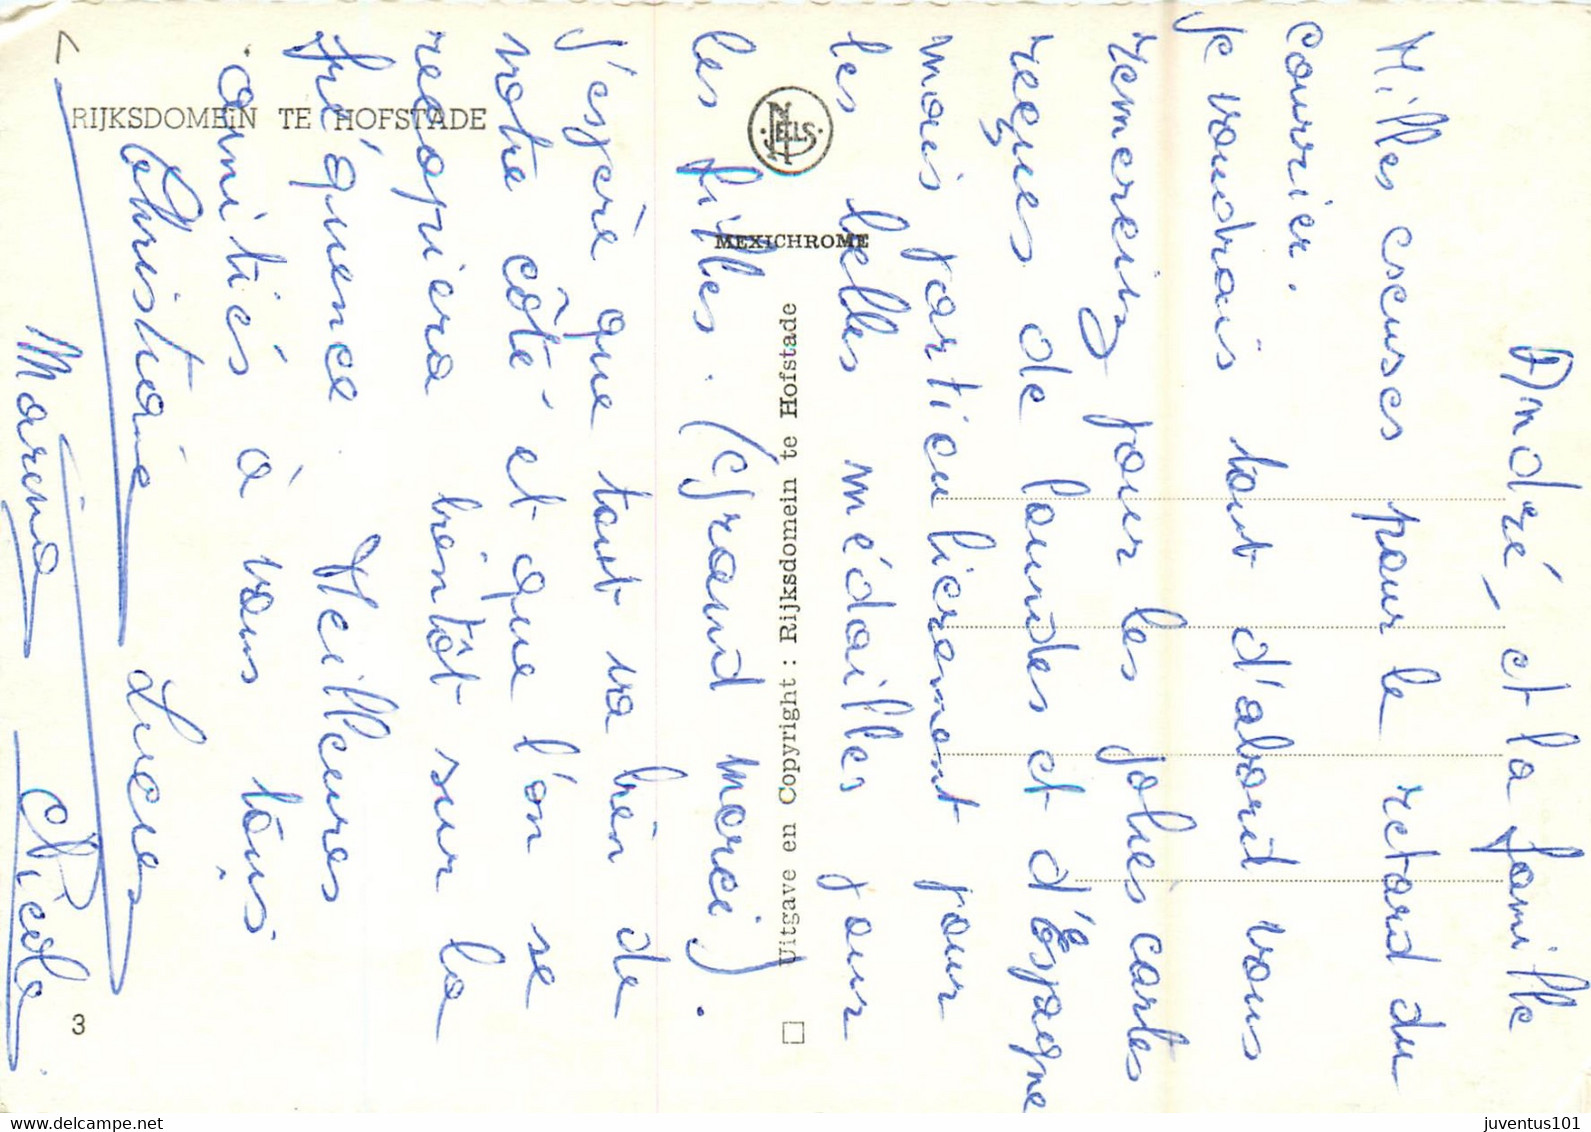 André, et la famille
Milles excuses pour le retard du
courrier.
je voudrais tout d'abord vous
remercier pour les jolies cartes
reçues de Lourdes et d'Espagne
mais particulierement pour
les belles médailles pour
les filles. (Grand merci).
j'espère que tout va bien de
votre côté et que l'on se
recopiera bientôt sur la
fréquence. Meilleures
amitiés à vous tous
Christiane Lucas
Marina Nicole
RIJKSDOMEIN TE HOFSTADE
NELS
MEXICHROME
Uitgave en Copyright : Rijksdomein te Hofstade
3
www.delcampe.net
juventus101